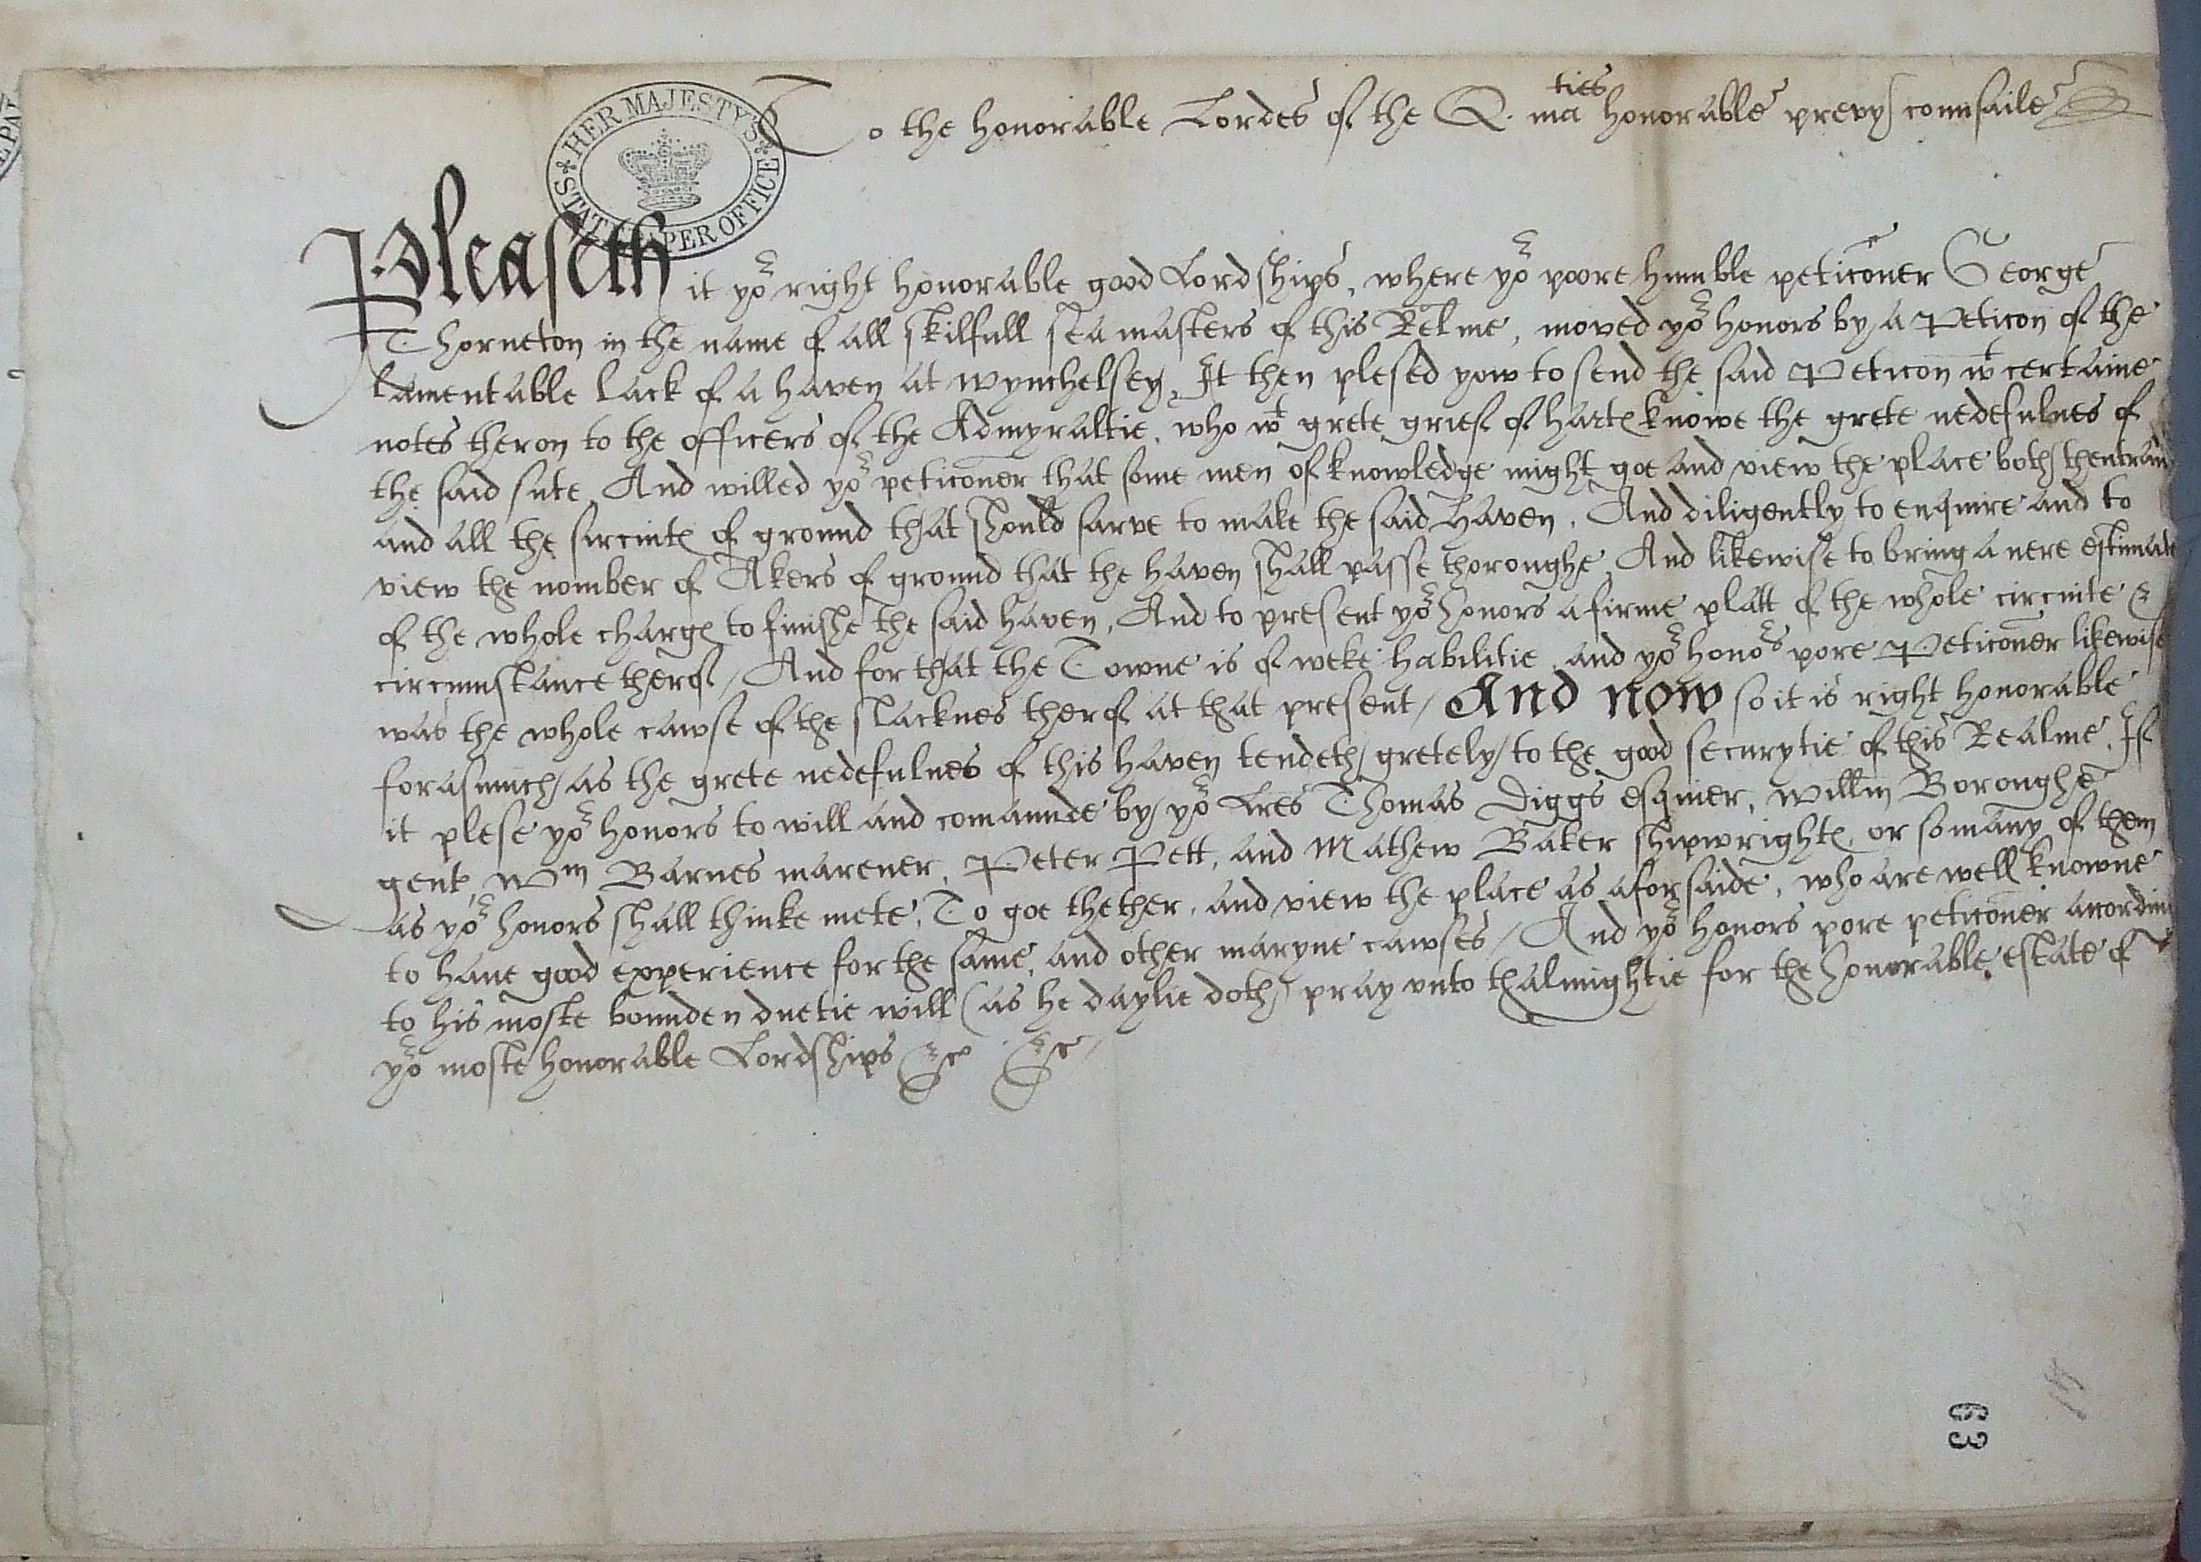 To the honorable Lordes of the Q. ma^ties honorable prevy counsaile
HER MAJESTY'S STATE PAPER OFFICE
Pleaseth it yo^r right honorable good Lordships, where yo^r poore humble peticoner George
Thorneton in the name of all skilfull sea masters of this Relme, moved yo^r honors by a Peticon of the
lamentable lack of a haven at wynchelsey, It then plesed yow to send the said Peticon w^t certaine
notes theron to the officers of the Admyraltie, who w^t grete grief of harte knowe the grete nedefulnes of
the said sute, And willed yo^r peticoner that some men of knowledge might goe and view the place both thentran
and all the sircuite of ground that should sarve to make the said haven, And diligently to enquire and to
view the nomber of Akers of ground that the haven shall passe thoroughe, And likewise to bring a nere estimate
of the whole charge to finishe the said haven, And to present yo^r honors a firme platt of the whole circuite &
circumstance therof / And for that the Towne is of weke habilitie, and yo^r hono^rs pore Peticoner likewise
was the whole cawse of the slacknes therof at that present / And now so it is right honorable
forasmuch as the grete nedefulnes of this haven tendeth gretely to the good securytie of this Realme, If
it plese yo^r honors to will and comaunde by yo^r Lres Thomas Diggs esquier, Willm Boroughe
gent, W^m Barnes marener, Peter Pett, and Mathew Baker shipwrights, or so many of them
as yo^r honors shall thinke mete, To goe thether, and view the place as aforsaide, who are well knowne
to have good experience for the same, and other maryne cawses / And yo^r honors pore peticoner accordin
to his moste bounden duetie will (as he daylie doth) pray unto thalmightie for the honorable estate of
yo^r moste honorable Lordships &c &c /
63